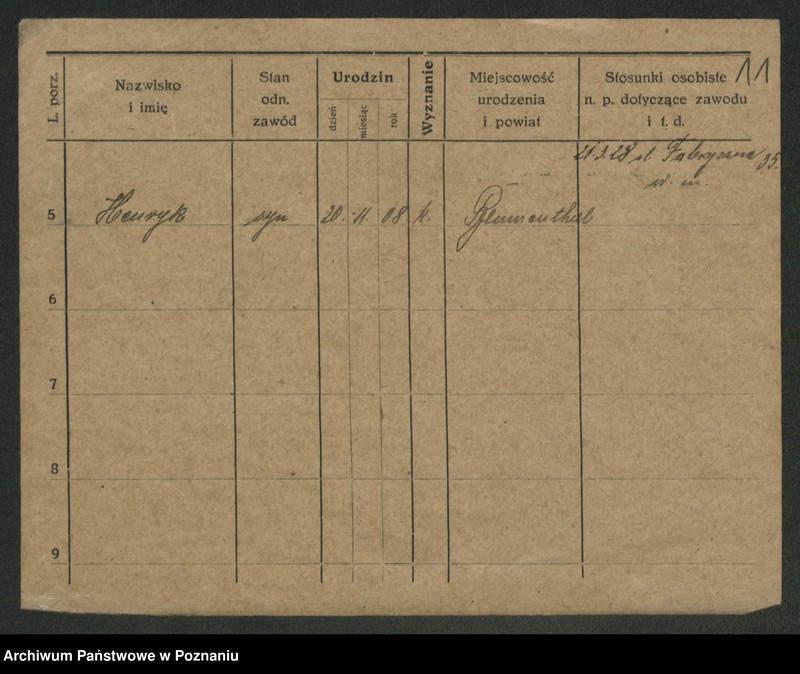 11
L. porz.
Nazwisko
i imię
Stan
odn.
zawód
Urodzin
dzień
miesiąc
rok
Wyznanie
Miejscowość
urodzenia
i powiat
Stosunki osobiste
n. p. dotyczące zawodu
i t. d.
21.3.28 ul Fabryczna 35.
w. m.
5 Henryk syn 20. 11. 08 k. Blumenthal
6
7
8
9
Archiwum Państwowe w Poznaniu